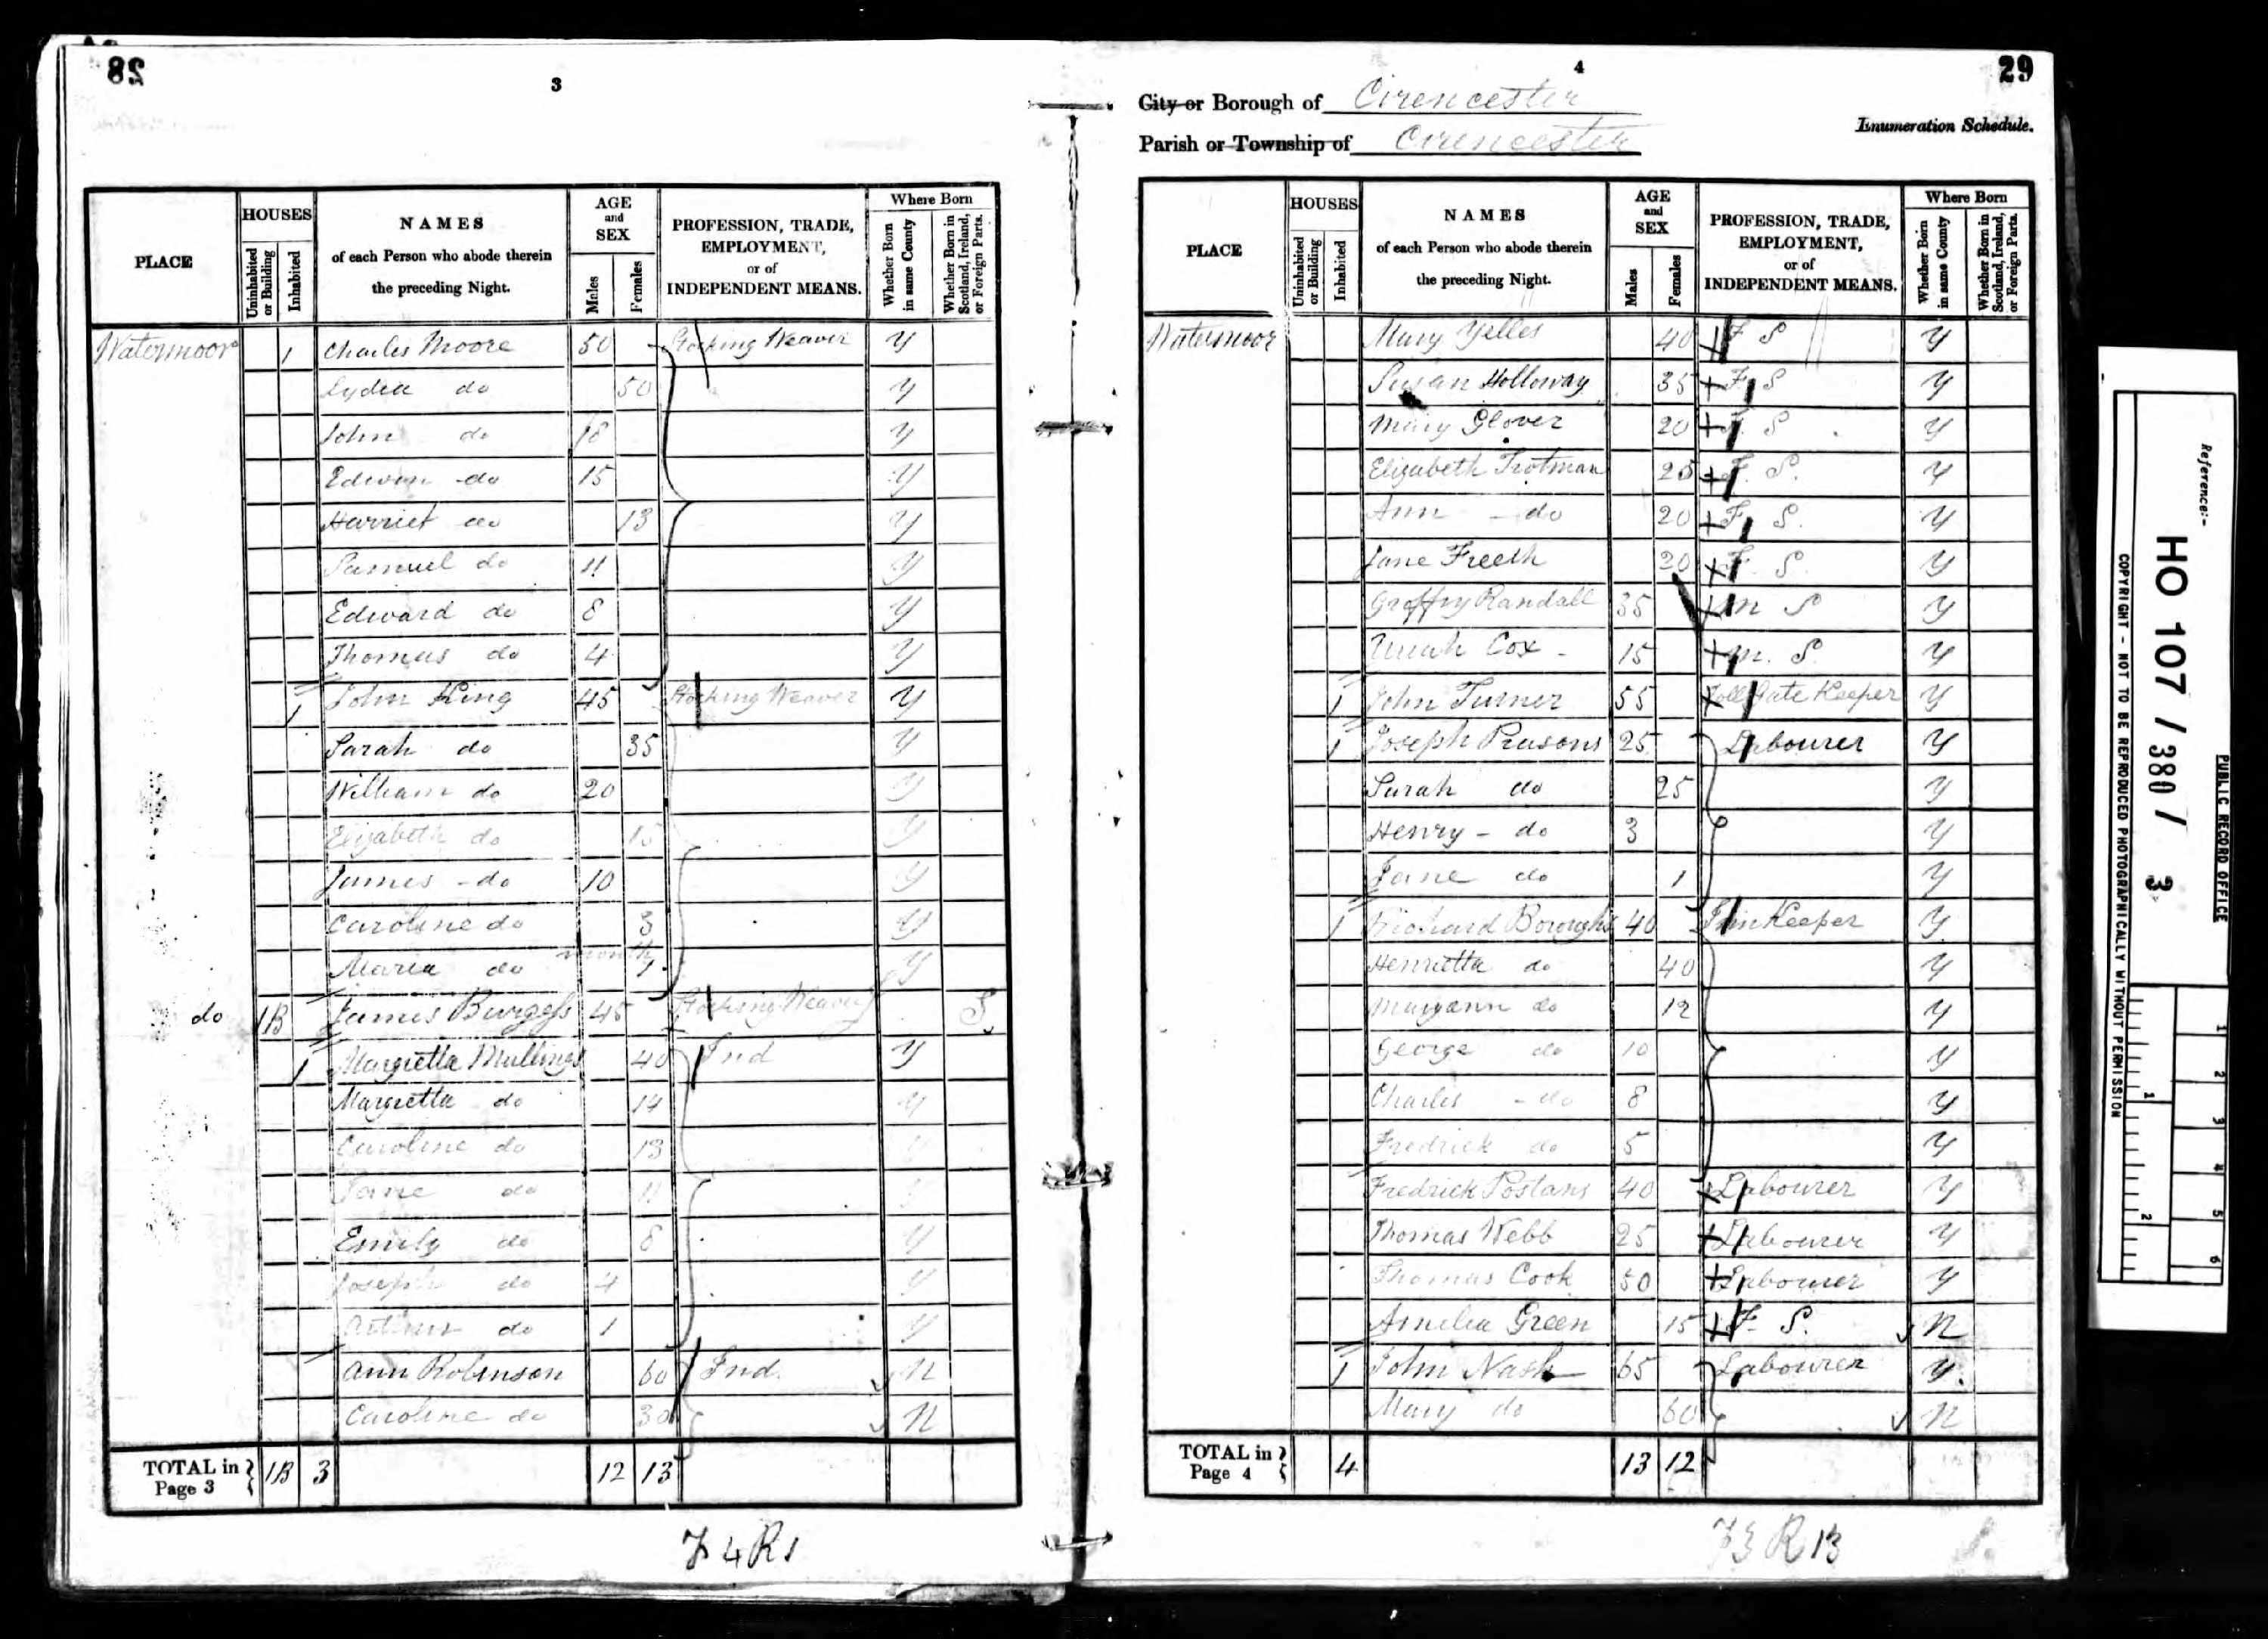 28
3
PLACE
HOUSES
Uninhabited or Building
Inhabited
NAMES
of each Person who abode therein
the preceding Night.
AGE
and
SEX
Males
Females
PROFESSION, TRADE,
EMPLOYMENT,
or of
INDEPENDENT MEANS.
Where Born
Whether Born in same County
Whether Born in Scotland, Ireland, or Foreign Parts.
Watermoor 1 Charles Moore 50 Stocking Weaver y
Lydia do 50 y
John do 18 y
Edwin do 15 y
Harriet do 13 y
Samuel do 11 y
Edward do 8 y
Thomas do 4 y
1 John King 45 Stocking Weaver y
Sarah do 35 y
William do 20 y
Elizabeth do 15 y
James - do 10 y
Caroline do 3 y
Maria do month y
do 1B James Burgess 45 Stocking Weaver S
1 Margretta Mullings 40 Ind y
Margretta do 14 y
Caroline do 13 y
Jane do 11 y
Emily do 8 y
Joseph do 4 y
do 1 y
Ann Robinson 60 Ind. N
Caroline do 30 N
TOTAL in Page 3 1B 3 12 13
4 R1
4
29
City or Borough of Cirencester
Parish or Township of Cirencester
Enumeration Schedule.
PLACE
HOUSES
Uninhabited or Building
Inhabited
NAMES
of each Person who abode therein
the preceding Night.
AGE
and
SEX
Males
Females
PROFESSION, TRADE,
EMPLOYMENT,
or of
INDEPENDENT MEANS.
Where Born
Whether Born in same County
Whether Born in Scotland, Ireland, or Foreign Parts.
Watermoor Mary Yelles 40 F S y
Susan Holloway 35 F S y
Mary Glover 20 F. S y
Elizabeth Trotman 25 F. S. y
Ann - do 20 F. S. y
Jane Freeth 20 F. S. y
Randall 35 M S y
Uriah Cox - 15 M. S. y
1 John Turner 55 Toll Gate Keeper y
1 Joseph Parsons 25 Labourer y
Sarah do 25 y
Henry - do 3 y
Jane do 1 y
1 Richard Boroughs 40 Inn Keeper y
Henrietta do 40 y
Maryann do 12 y
George do 10 y
Charles - do 8 y
Fredrick do 5 y
Fredrick Postans 40 Labourer y
Thomas Webb 25 Labourer y
Thomas Cook 50 Labourer y
Amelia Green 15 F. S. N
1 John Nash 65 Labourer y.
Mary do 60 N
TOTAL in Page 4 4 13 12
R 13
Reference:-
HO 107 / 380 / 3
PUBLIC RECORD OFFICE
COPYRIGHT - NOT TO BE REPRODUCED PHOTOGRAPHICALLY WITHOUT PERMISSION
1
2
3
4
5
6
1
2